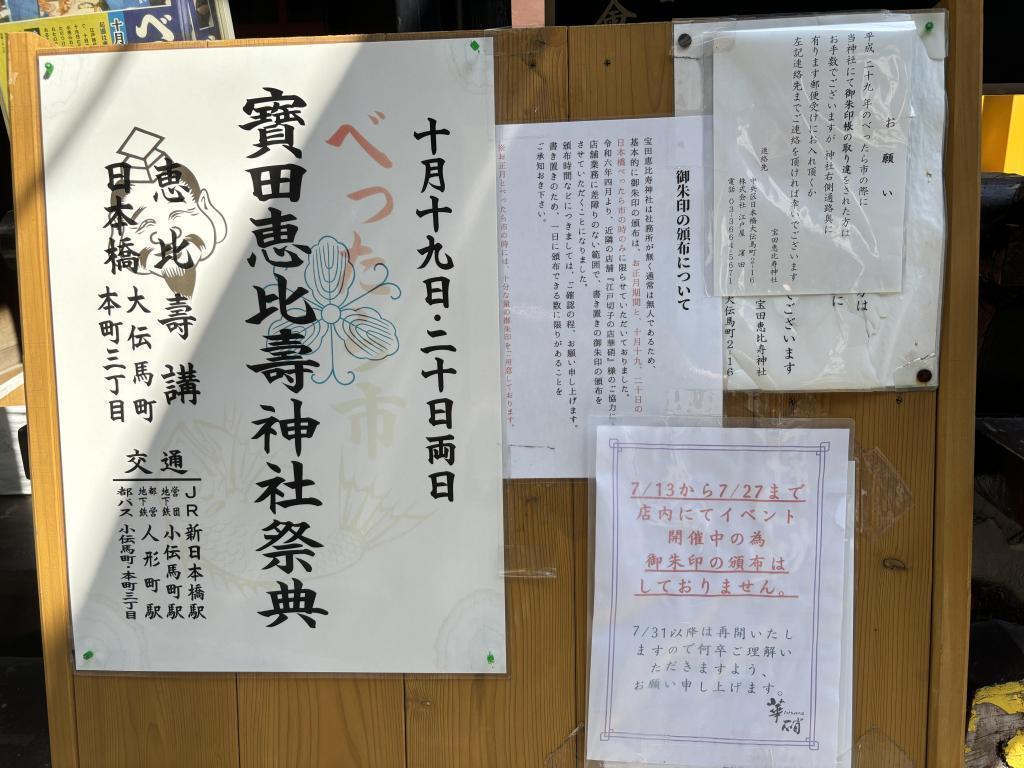 十月十九日・二十日両日
べったら市
寶田恵比壽神社祭典
恵比壽講
日本橋
大伝馬町
本町三丁目
交通
JR新日本橋駅
営団地下鉄小伝馬町駅
都営地下鉄人形町駅
都バス小伝馬町・本町三丁目
御朱印の頒布について
宝田恵比寿神社は社務所が無く通常は無人であるため、
基本的に御朱印の頒布は、お正月期間と、十月十九、二十日の
日本橋べったら市の時のみに限らせていただいておりました。
令和六年四月より、近隣の店舗『江戸切子の店華硝』様のご協力に
店舗業務に差障りのない範囲で、書き置きの御朱印の頒布を
させていただくことになりました。
頒布時間などにつきましては、ご確認の程、お願い申し上げます。
書き置きのため、一日に頒布できる数に限りがあることを
ご承知おき下さい。
※お正月とべったら市の時には、十分な量の御朱印をご用意しております。
お願い
平成二十九年のべったら市の際に
当神社にて御朱印帳の取り違をされた方は
お手数でございますが神社右側通路奥に
有ります郵便受けにお入れ頂くか
左記連絡先までご連絡を頂ければ幸いでございます
宝田恵比寿神社
連絡先
中央区日本橋大伝馬町2-16
株式会社 江戸屋 濱田
電話 03-3664-5671
ございます
宝田恵比寿神社
大伝馬町2-16
7/13から7/27まで
店内にてイベント
開催中の為
御朱印の頒布は
しておりません。
7/31以降は再開いたし
ますので何卒ご理解い
ただきますよう、
お願い申し上げます。
華硝